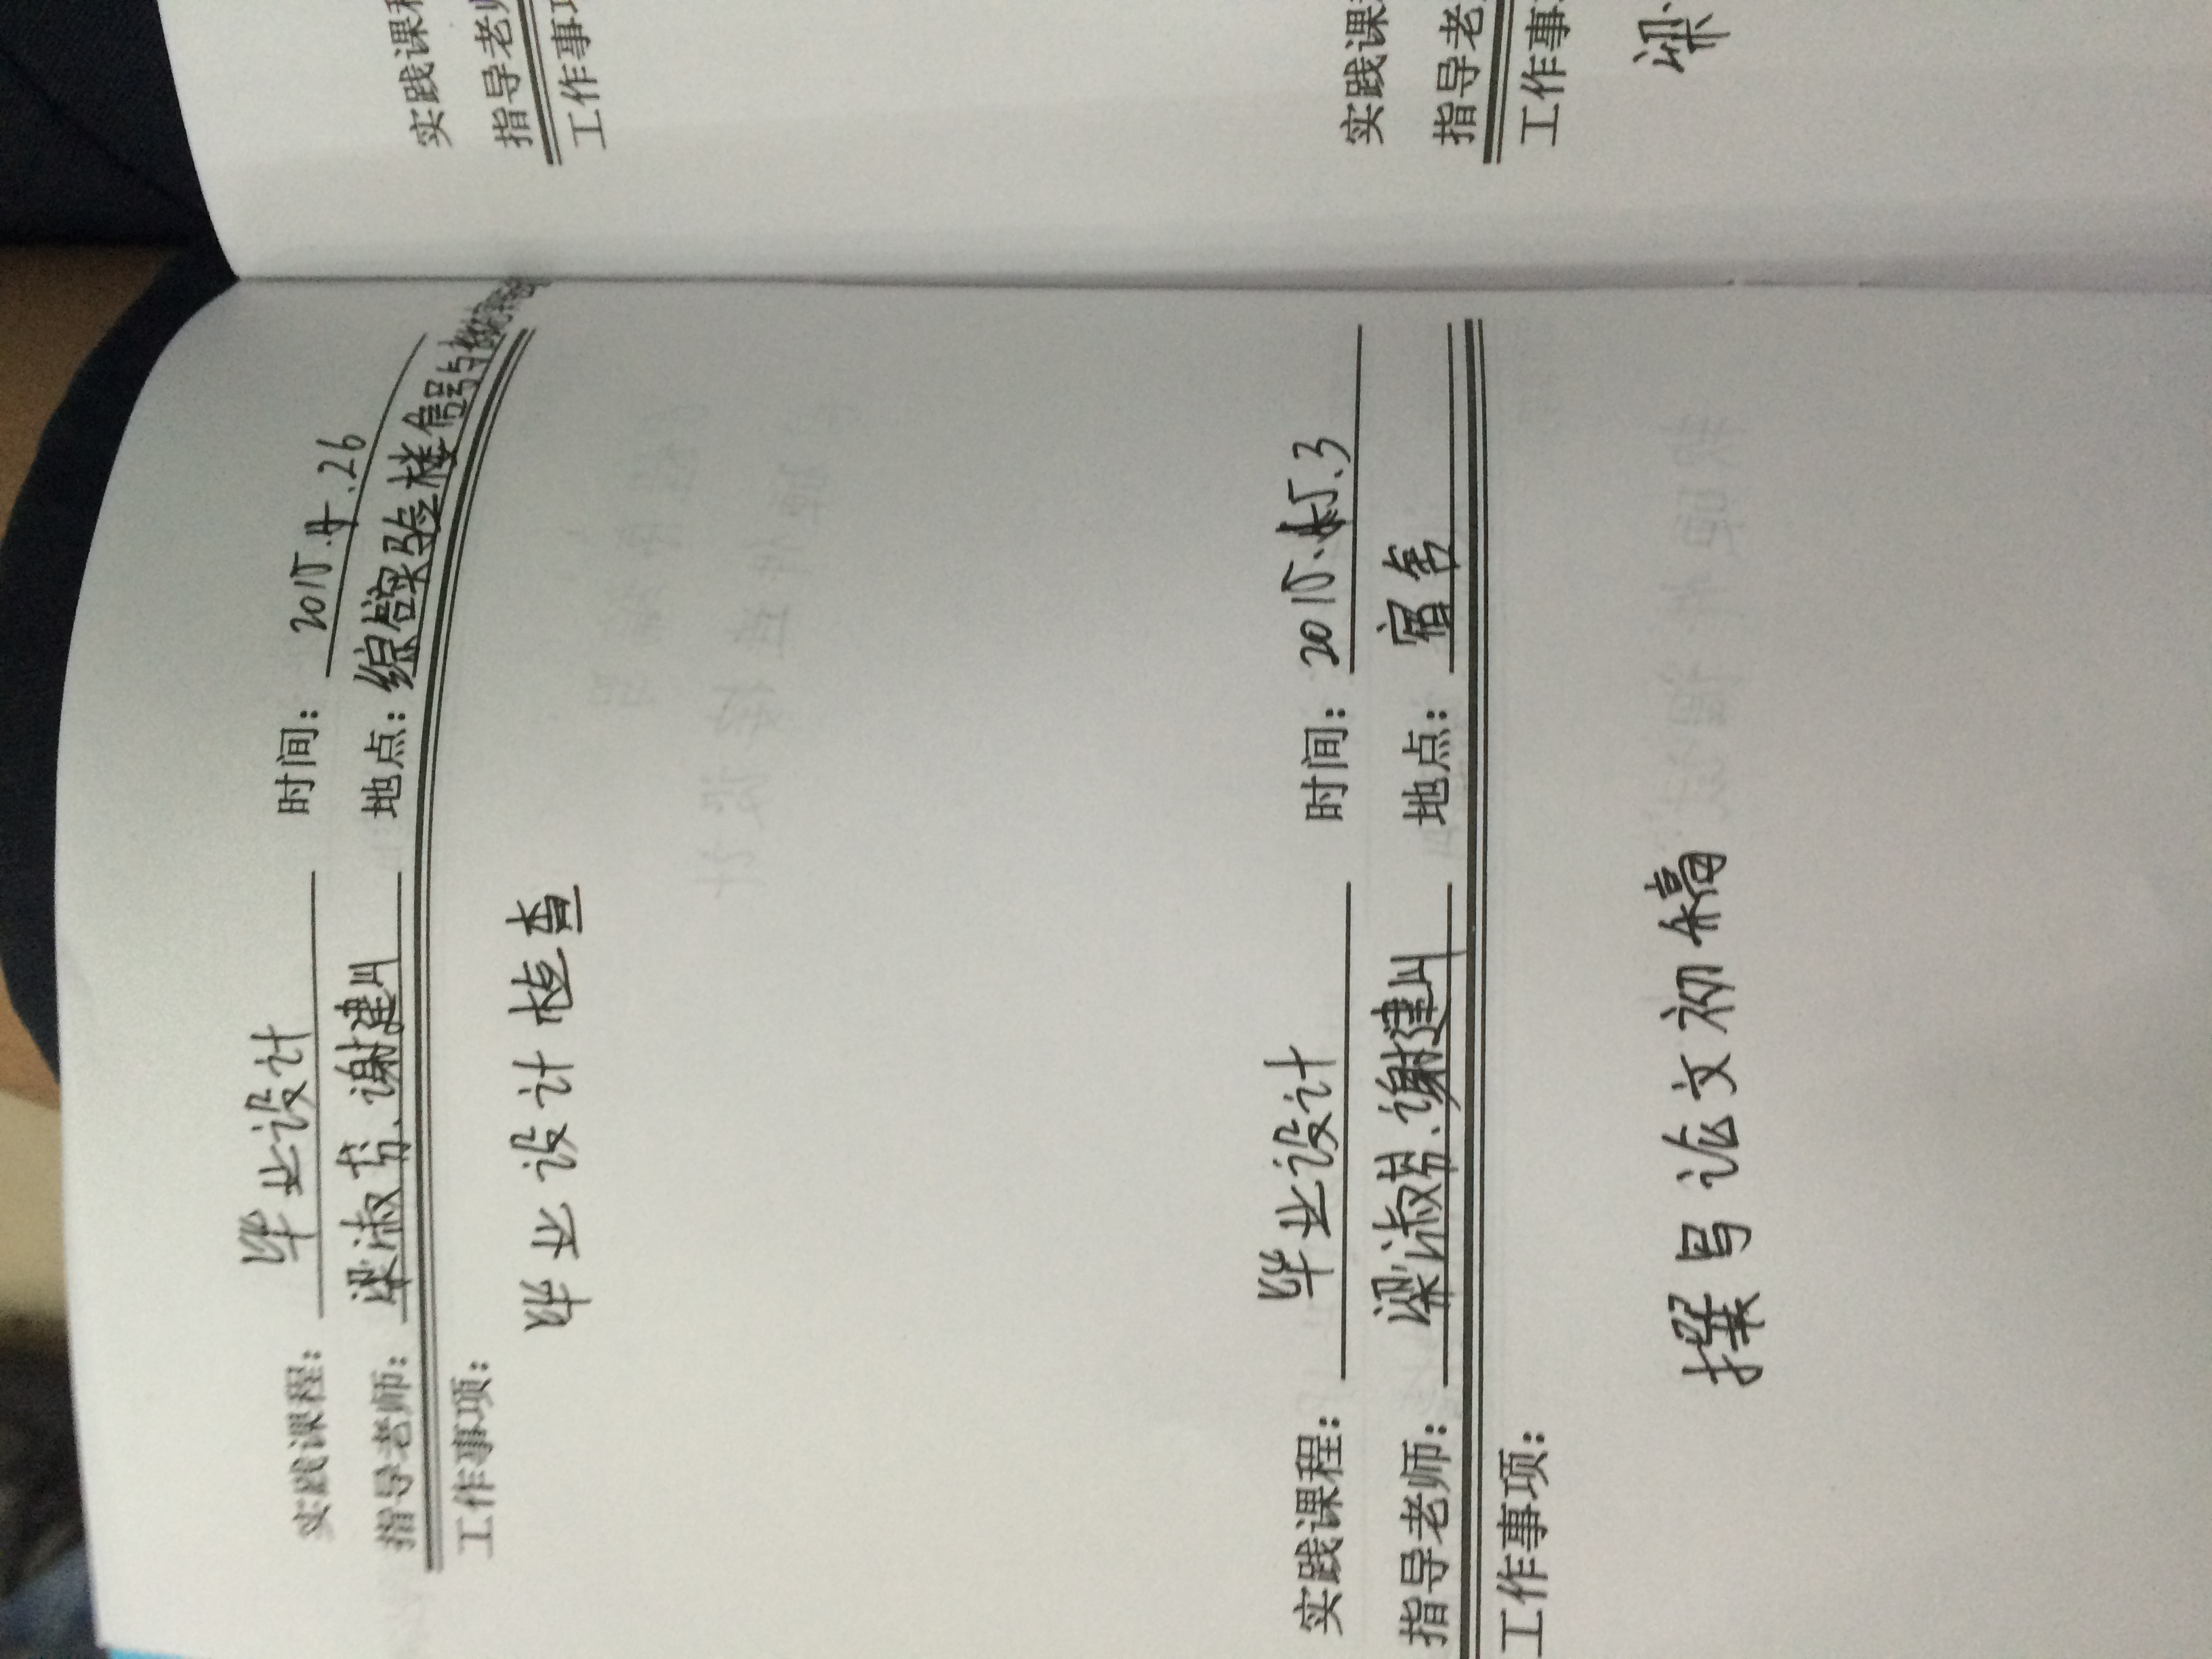 实践课程：毕业设计 时间：2015.4.26
指导老师：梁淑芬、谢建川 地点：综合实验楼信号与
工作事项：
毕业设计检查
实践课程：毕业设计 时间：2015.5.3
指导老师：梁淑芬、谢建川 地点：宿舍
工作事项：
撰写论文初稿
实践课
指导老
工作事项
实践课
指导老
工作事
梁